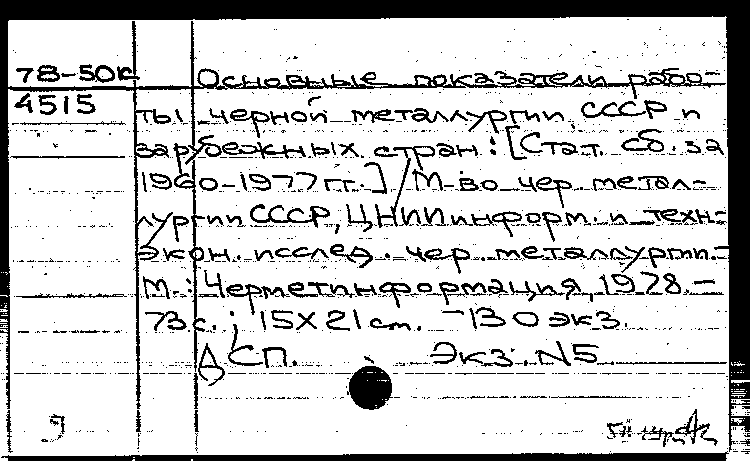 78-50к Основные показатели рабо-
4515 ты черной металлургии СССР и
зарубежных стран: [Стат. сб. за
1960-1977 гг.] / М-во чер. метал-
лургии СССР, ЦНИИ информ. и техн-
экон. исслед. чер. металлургии.-
М.: Черметинформация, 1978.-
73 с.; 15X21 cm. -130 экз.
ДСП. Экз. N5